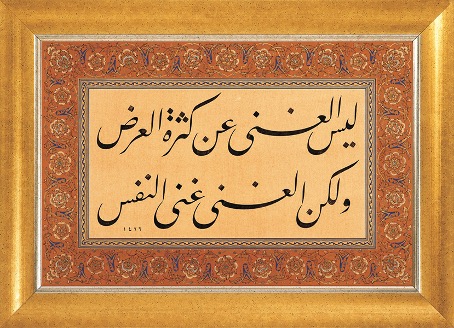 ليس الغنى عن كثرة العرض
ولكن الغنى غنى النفس